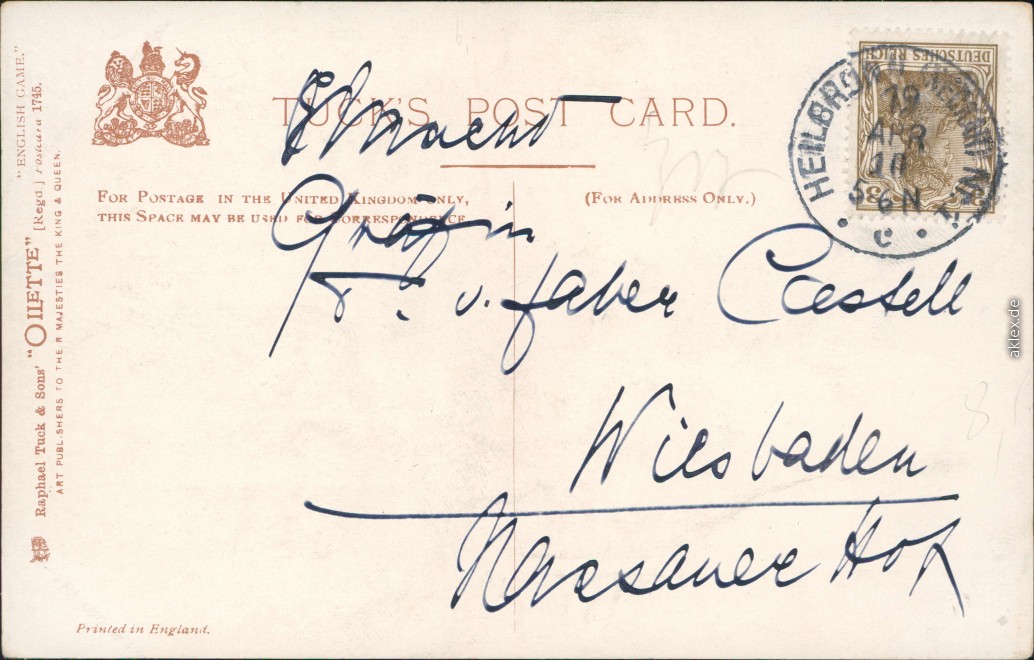 TUCK'S POST CARD.
FOR POSTAGE IN THE UNITED KINGDOM ONLY,
THIS SPACE MAY BE USED FOR CORRESPONDENCE
(FOR ADDRESS ONLY.)
Gräfin
v. Faber Castell
Wiesbaden
Nassauer Hof
"ENGLISH GAME."
Raphael Tuck & Sons' "OILETTE" [Regd.] Postcard 1745.
ART PUBLISHERS TO THEIR MAJESTIES THE KING & QUEEN.
Printed in England.
DEUTSCHES REICH
3
HEILBRONN
19
APR
10
6 N
c
aklex.de